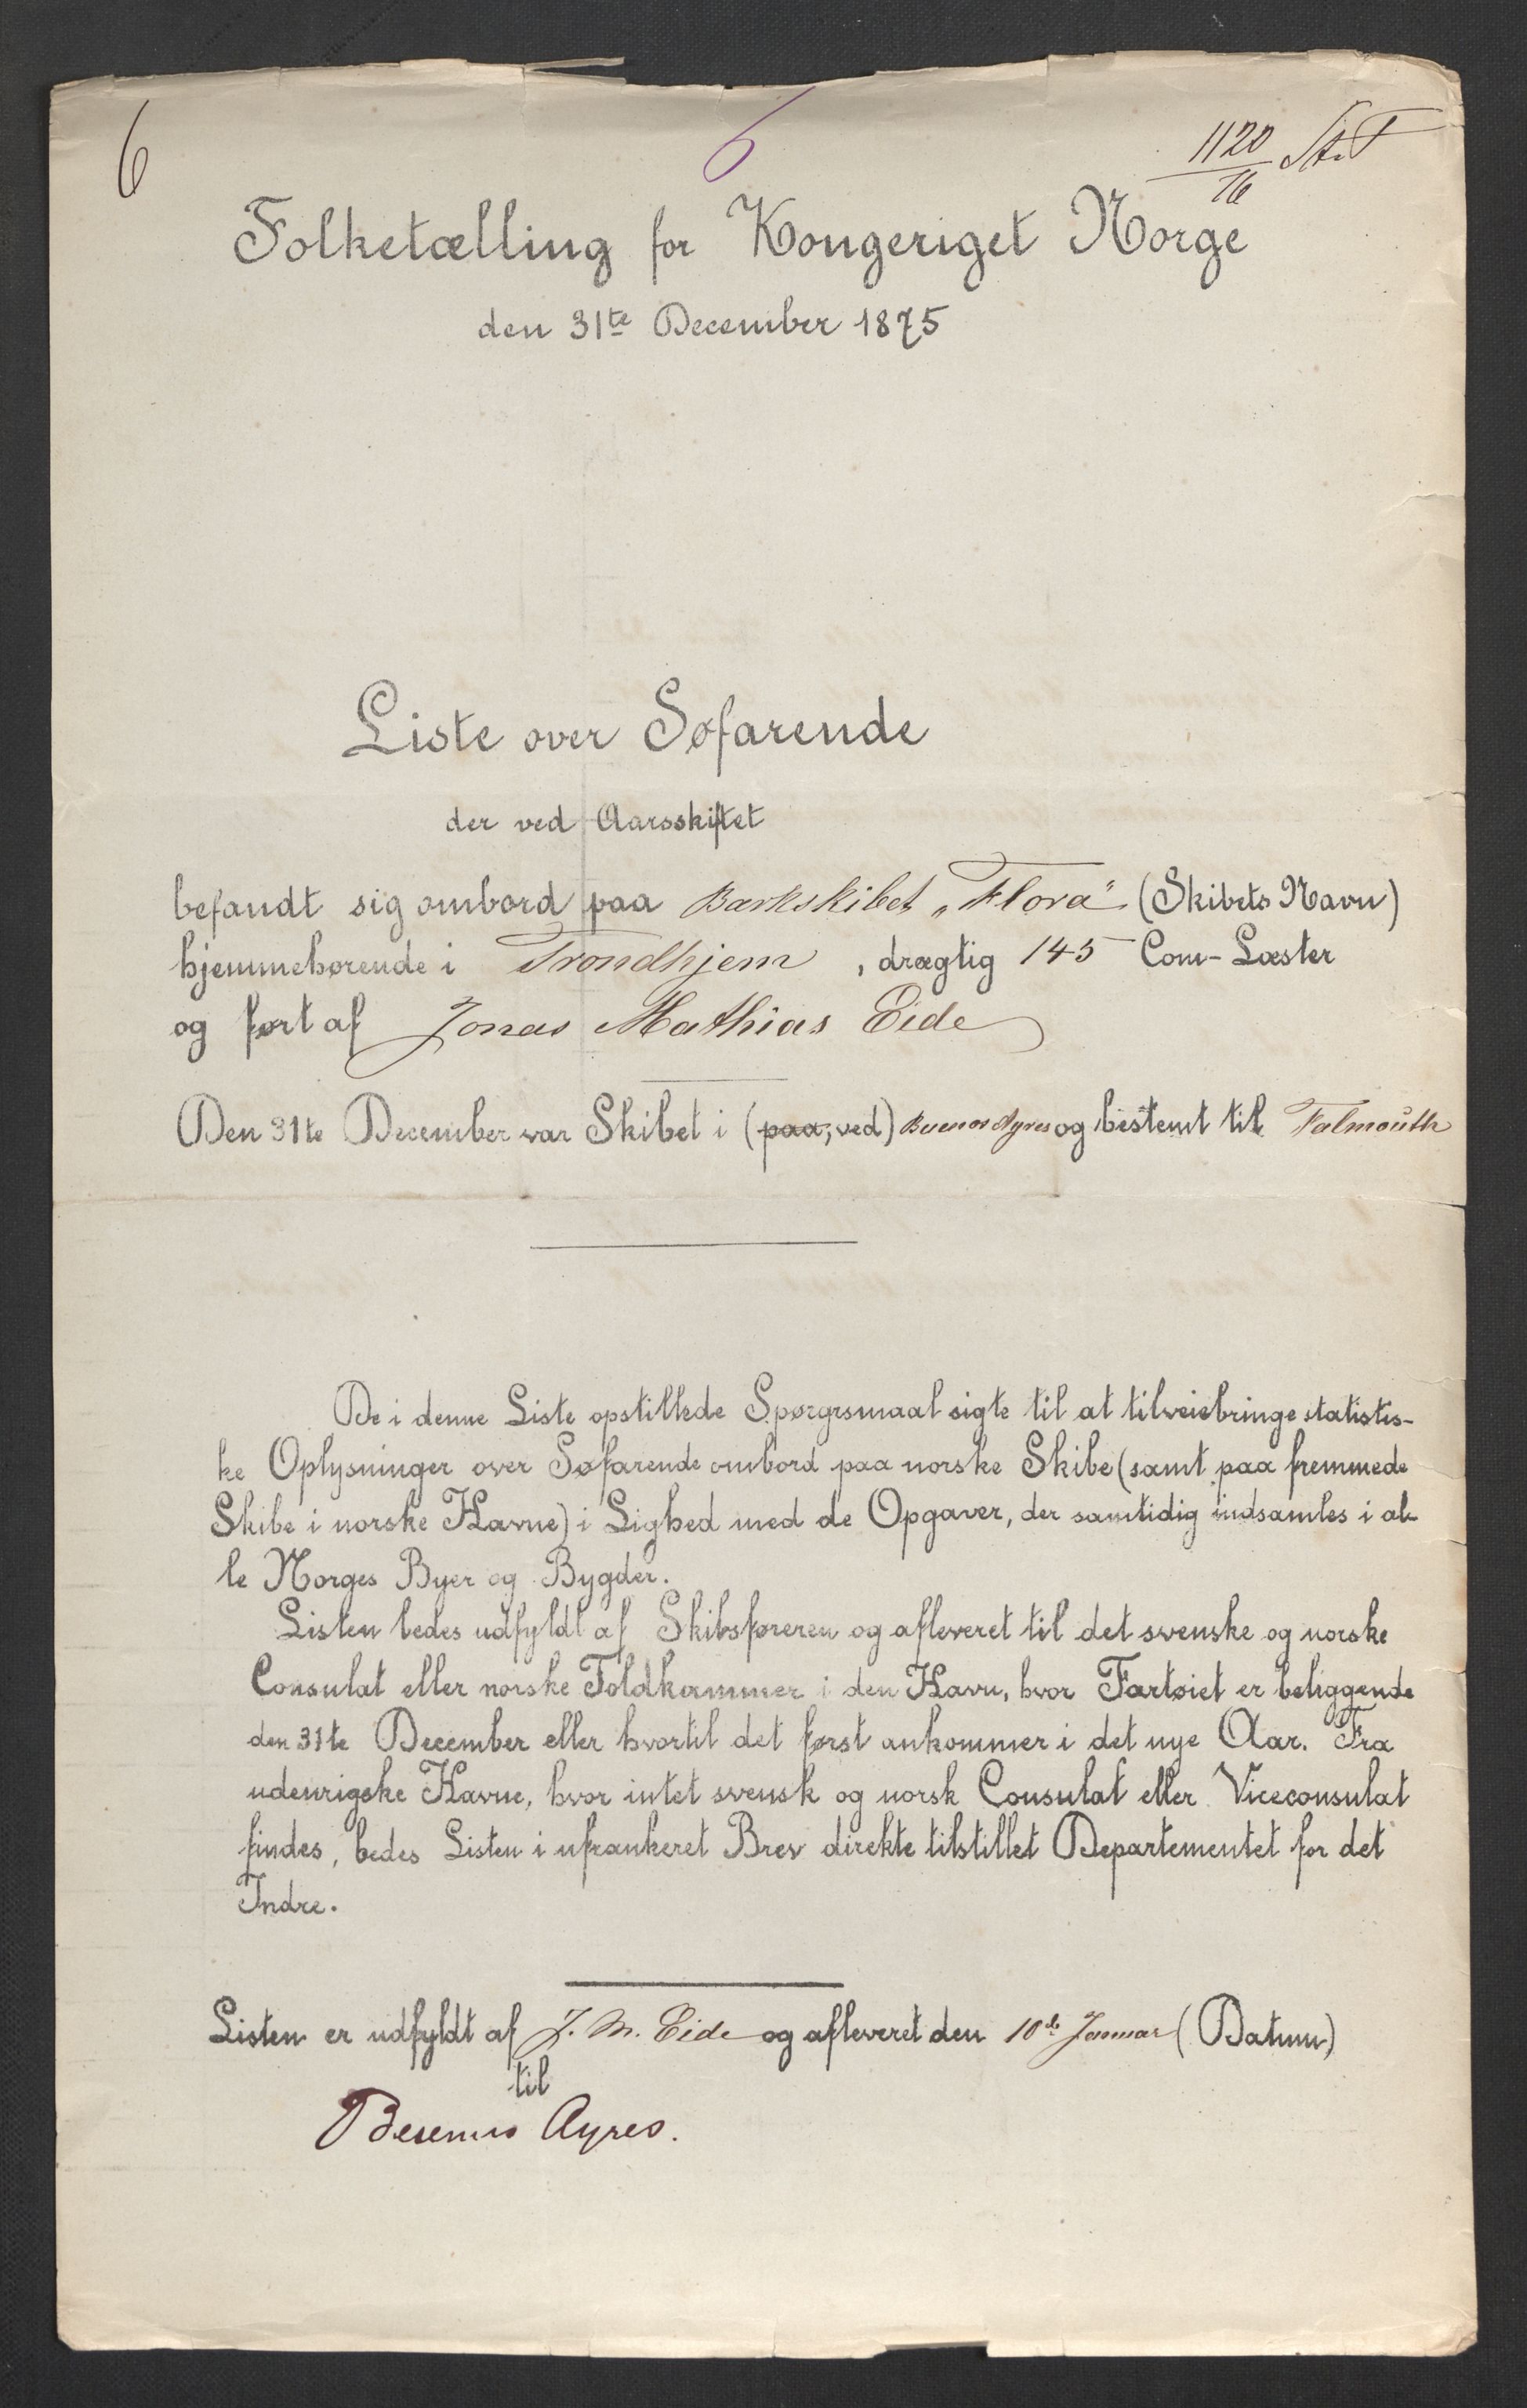 6
6
1120 St. T
76
Folketælling for Kongeriget Norge
den 31te December 1875
Liste over Søfarende
der ved Aarsskiftet
befandt sig ombord paa Barkskibet „Flora" (Skibets Navn)
hjemmehørende i Trondhjem, drægtig 145 Com-Læster
og ført af Jonas Mathias Eide
Den 31te December var Skibet i (paa, ved) Buenos Ayres og bestemt til Falmouth
De i denne Liste opstillede Spørgrsmaal sigte til at tilveiebringe statistis-
ke Oplysninger over Søfarende ombord paa norske Skibe (samt paa fremmede
Skibe i norske Havne) i Lighed med de Opgaver, der samtidig indsamles i al-
le Norges Byer og Bygder.
Listen bedes udfyldt af Skibsføreren og afleveret til det svenske og norske
Consulat eller norske Toldkammer i den Havn, hvor Fartøiet er beliggende
den 31te December eller hvortil det først ankommer i det nye Aar. Fra
udenrigske Havne, hvor intet svensk og norsk Consulat eller Viceconsulat
findes, bedes Listen i ufrankeret Brev direkte tilstillet Departementet for det
Indre.
Listen er udfyldt af J. M. Eide og afleveret den 10de Januar (Datum)
til
Buenos Ayres.